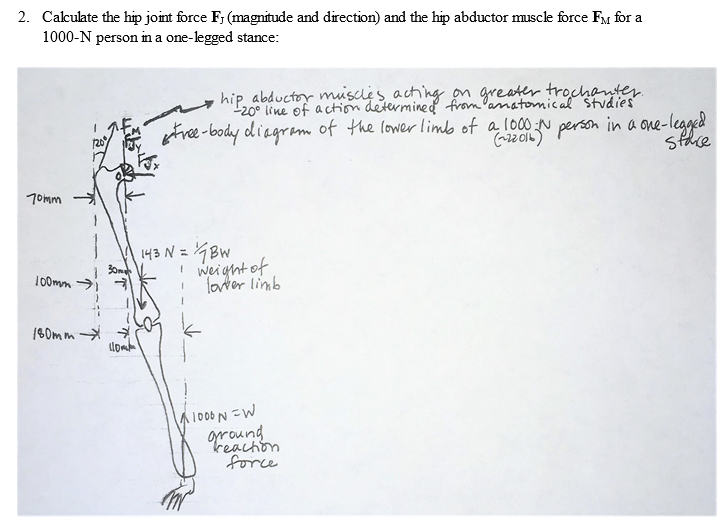 2. Calculate the hip joint force FJ (magnitude and direction) and the hip abductor muscle force FM for a
1000-N person in a one-legged stance:
hip abductor muscles acting on greater trochanter.
~20° line of action determined from anatomical studies
free-body diagram of the lower limb of a 1000-N person in a one-legged
(~220lb)
stance
20°
FM
FJy
FJx
70mm
143 N = 1/7 BW
weight of
lower limb
30mm
100mm
180mm
110mm
1000 N = W
ground
reaction
force